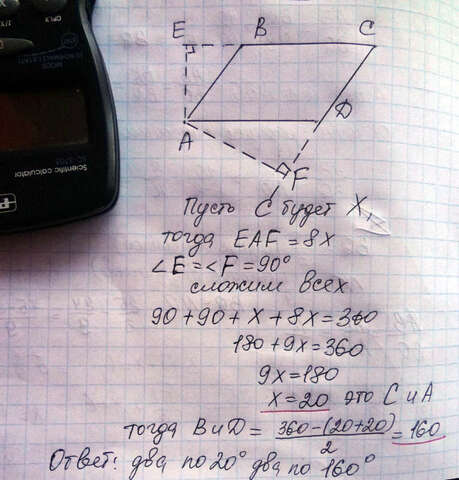 E B C
A D
F
Пусть C будет X,
тогда EAF = 8x
∠E = ∠F = 90°
сложим всех
90 + 90 + x + 8x = 360
180 + 9x = 360
9x = 180
x = 20 это C и A
тогда B и D = (360 - (20 + 20)) / 2 = 160
Ответ: два по 20° два по 160°
Scientific calculator